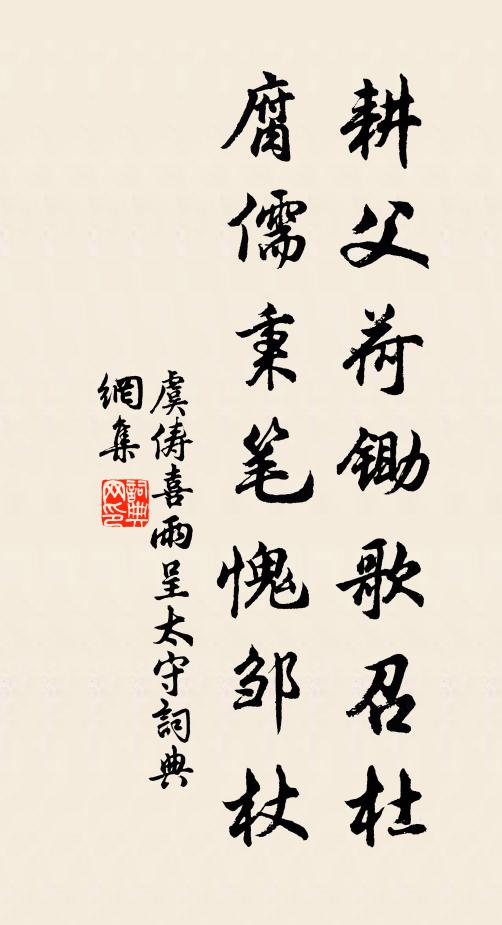 耕父荷锄歌召杜
腐儒秉笔愧邹杖
虞俦喜雨呈太守詞典
網集
詞典
网印